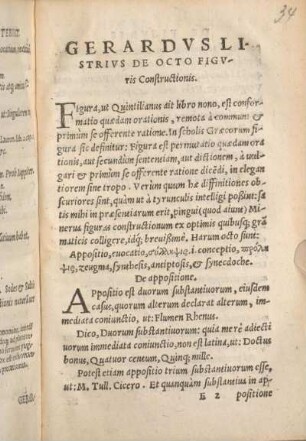 34
GERARDVS LI-
STRIVS DE OCTO FIGV-
ris Constructionis.
Figura, ut Quintilianus ait libro nono, est confor-
matio quædam orationis, remota à communi &
primùm se offerente ratione. In scholis Græcorum fi-
gura sic definitur: Figura est permutatio quædam ora
tionis, aut secundùm sententiam, aut dictionem, à uul-
gari & primùm se offerente ratione dicēdi, in elegan
tiorem sine tropo. Verùm quum hæ diffinitiones ob-
scuriores sint, quàm ut à tyrunculis intelligi possint: sa
tis mihi in præsentiarum erit, pingui (quod aiunt) Mi
nerua figuras constructionum ex optimis quibusq; grā
maticis colligere, idq́; breuissimè. Harum octo sunt:
Appositio, euocatio, σύλληψις .i. conceptio, πρόλη
ψις, zeugma, synthesis, antiptosis, & synecdoche.
De appositione.
APpositio est duorum substantiuorum, eiusdem
casus, quorum alterum declarat alterum, im-
mediata coniunctio, ut: Flumen Rhenus.
Dico, Duorum substantiuorum: quia merè adiecti
uorum immediata coniunctio, non est latina, ut: Doctus
bonus, Quatuor centum, Quinq; mille.
Potest etiam appositio trium substantiuorum esse,
ut: M. Tull. Cicero. Et quanquàm substantiua in ap-
E 2 positione